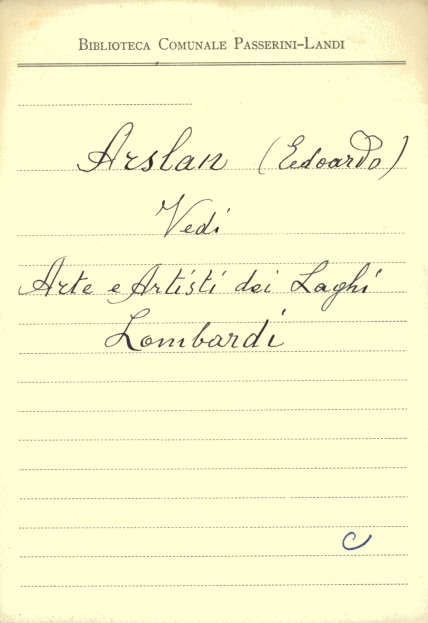 Biblioteca Comunale Passerini-Landi
Arslan (Edoardo)
Vedi
Arte e Artisti dei Laghi
Lombardi
C